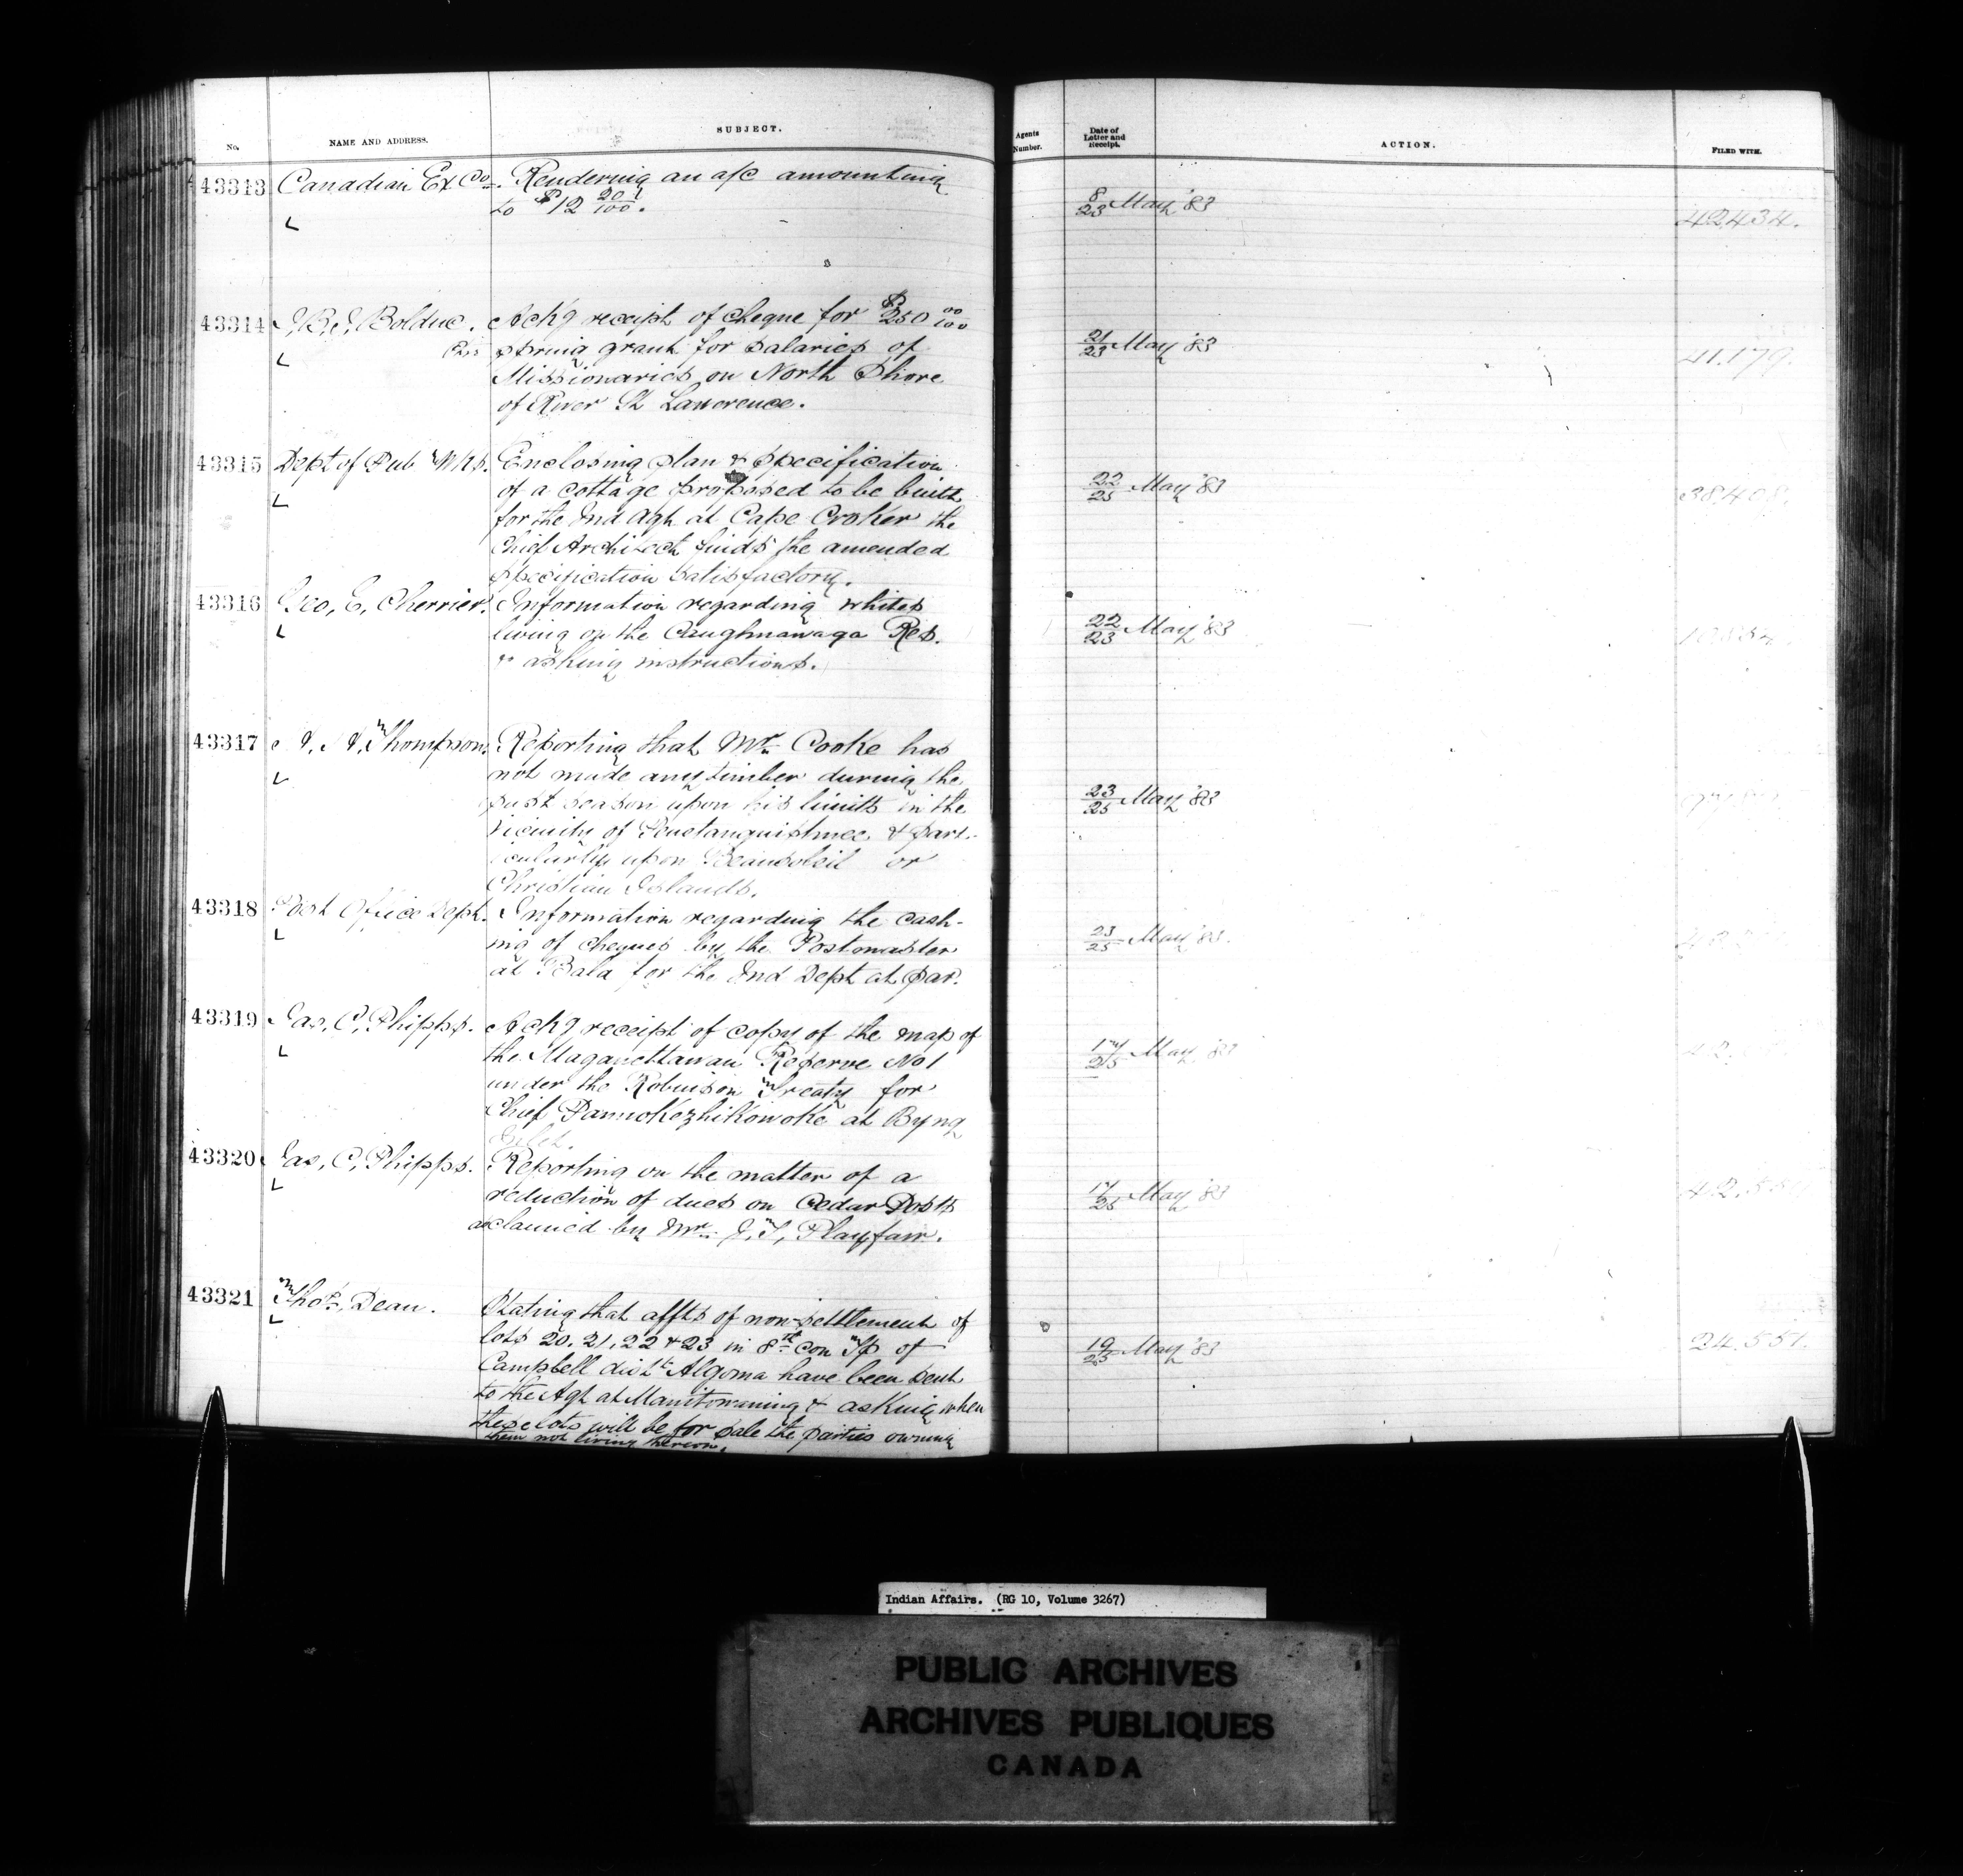 No.
NAME AND ADDRESS.
SUBJECT.
Agents Number.
Date of Letter and Receipt.
ACTION.
FILED WITH.
43313 Canadian Ex Co. Rendering an a/c amounting
to $12 20/100.
8/23 May '83
42434.
43314 J.B.Z. Bolduc. Ackg receipt of cheque for $250 00/100
spring grant for salaries of
Missionaries on North Shore
of River St Lawrence.
21/23 May '83
41.179.
43315 Dept of Pub Wks. Enclosing plan & specification
of a cottage proposed to be built
for the Ind Agt at Cape Croker the
Chief Architect finds the amended
specification satisfactory.
22/25 May '83
38408.
43316 Geo, E, Cherrier. Information regarding whites
living on the Caughnawaga Res.
& asking instructions.
22/23 May '83
43317 Thompson. Reporting that Mr Cooke has
not made any timber during the
past season upon his limits in the
vicinity of Penetanguishmee & part-
icularly upon Beausoleil or
Christian Islands.
23/25 May '83
43318 Post Office Dept. Information regarding the cash-
ing of cheques by the Postmaster
at Bala for the Ind Dept at par.
23/25 May '83.
43319 Jas, C, Phipps. Ackg receipt of copy of the map of
the Maganettawan Reserve No 1
under the Robinson Treaty for
Chief at Byng
Inlet.
17/25 May '83
43320 Jas, C, Phipps. Reporting on the matter of a
reduction of dues on Cedar Posts
as claimed by Mr J, T, Playfair.
17/25 May '83
43321 Thos, Dean. Stating that affts of non-settlement of
lots 20, 21, 22 & 23 in 8th con Tp of
Campbell distt Algoma have been sent
to the Agt at Manitowaning & asking when
these lots will be for sale the parties owning
them not living thereon.
19/25 May '83
24,551.
Indian Affairs. (RG 10, Volume 3267)
PUBLIC ARCHIVES
ARCHIVES PUBLIQUES
CANADA